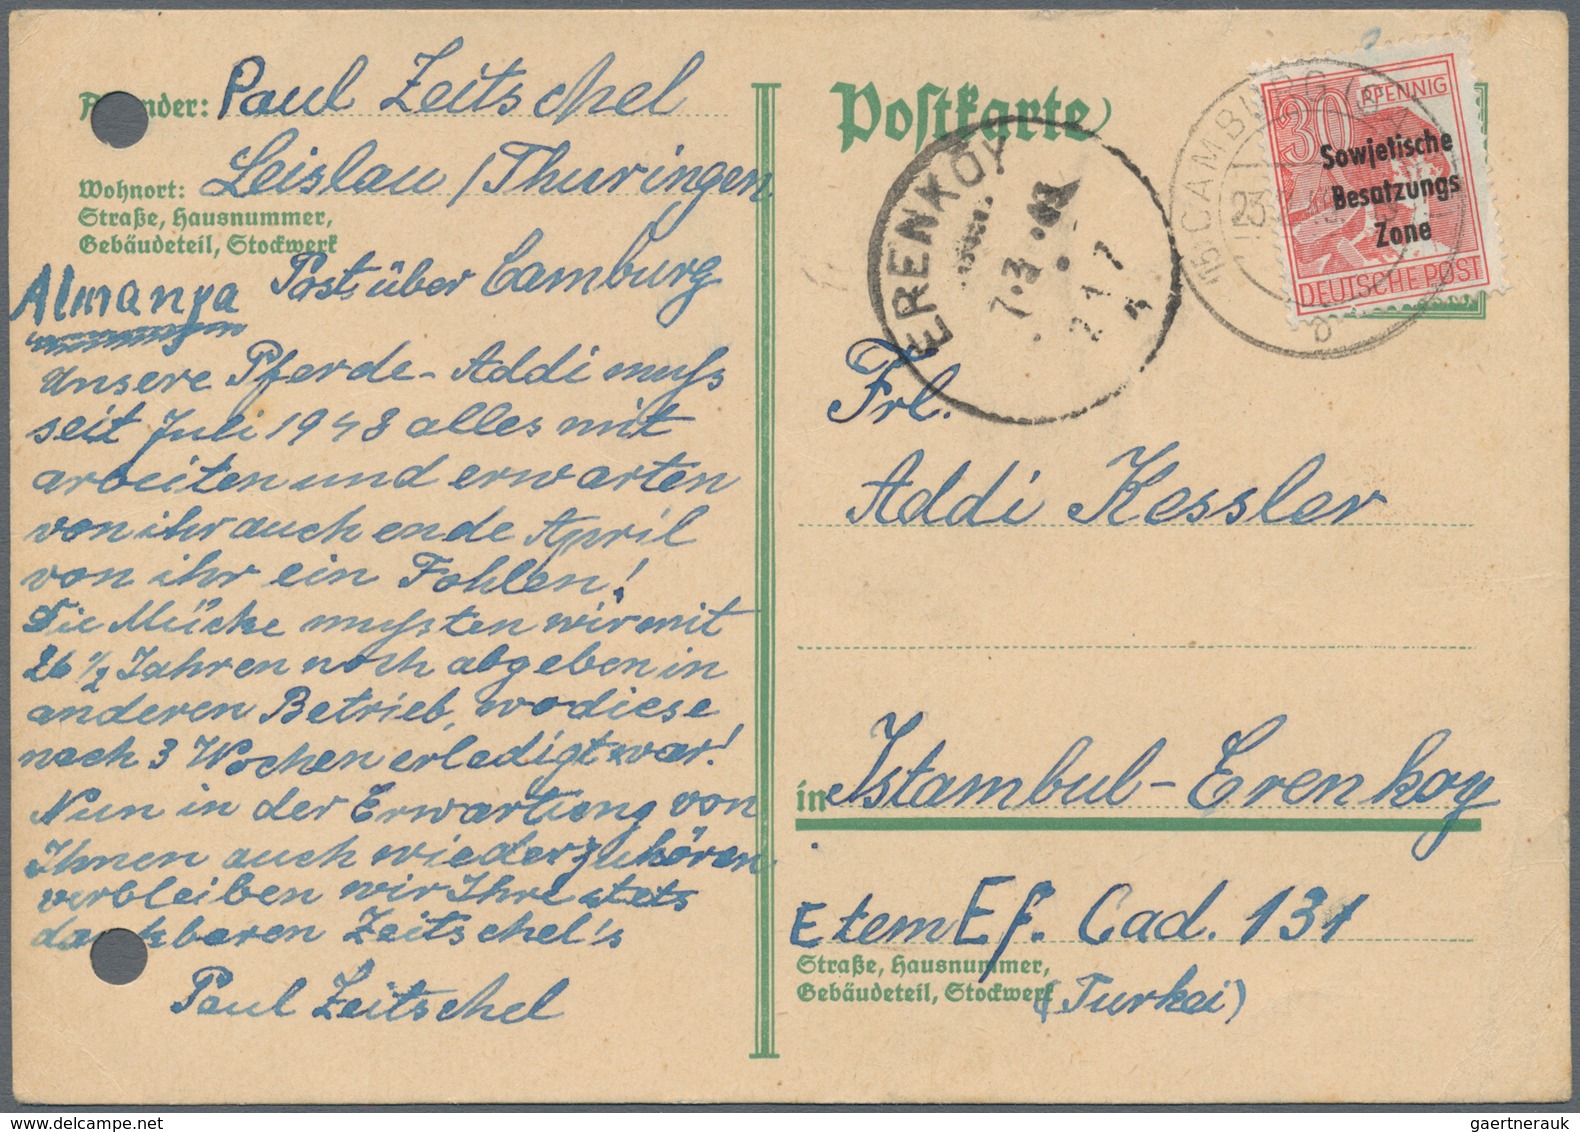 Absender: Paul Zeitschel
Wohnort: Leislau / Thuringen
Straße, Hausnummer,
Gebäudeteil, Stockwerk
Post über Camburg
Almanya
Unsere Pferde-Addi muss
seit Juli 1948 alles mit
arbeiten und erwarten
von ihr auch ende April
von ihr ein Fohlen!
Die Mücke mussten wir mit
26 1/2 Jahren noch abgeben in
anderen Betrieb, wo diese
nach 3 Wochen erledigt war!
Nun in der Erwartung von
Ihnen auch wieder zu hören
verbleiben wir Ihre stets
dankbaren Zeitschel's
Paul Zeitschel
Postkarte
ERENKÖY
7.3.
21 7
15 CAMBURG
23
b
30 PFENNIG
Sowjetische
Besatzungs
Zone
DEUTSCHE POST
Frl.
Addi Kessler
in Istambul-Erenkoy
Etem Ef. Cad. 131
Straße, Hausnummer,
Gebäudeteil, Stockwerk
(Turkei)
gaertnerauk